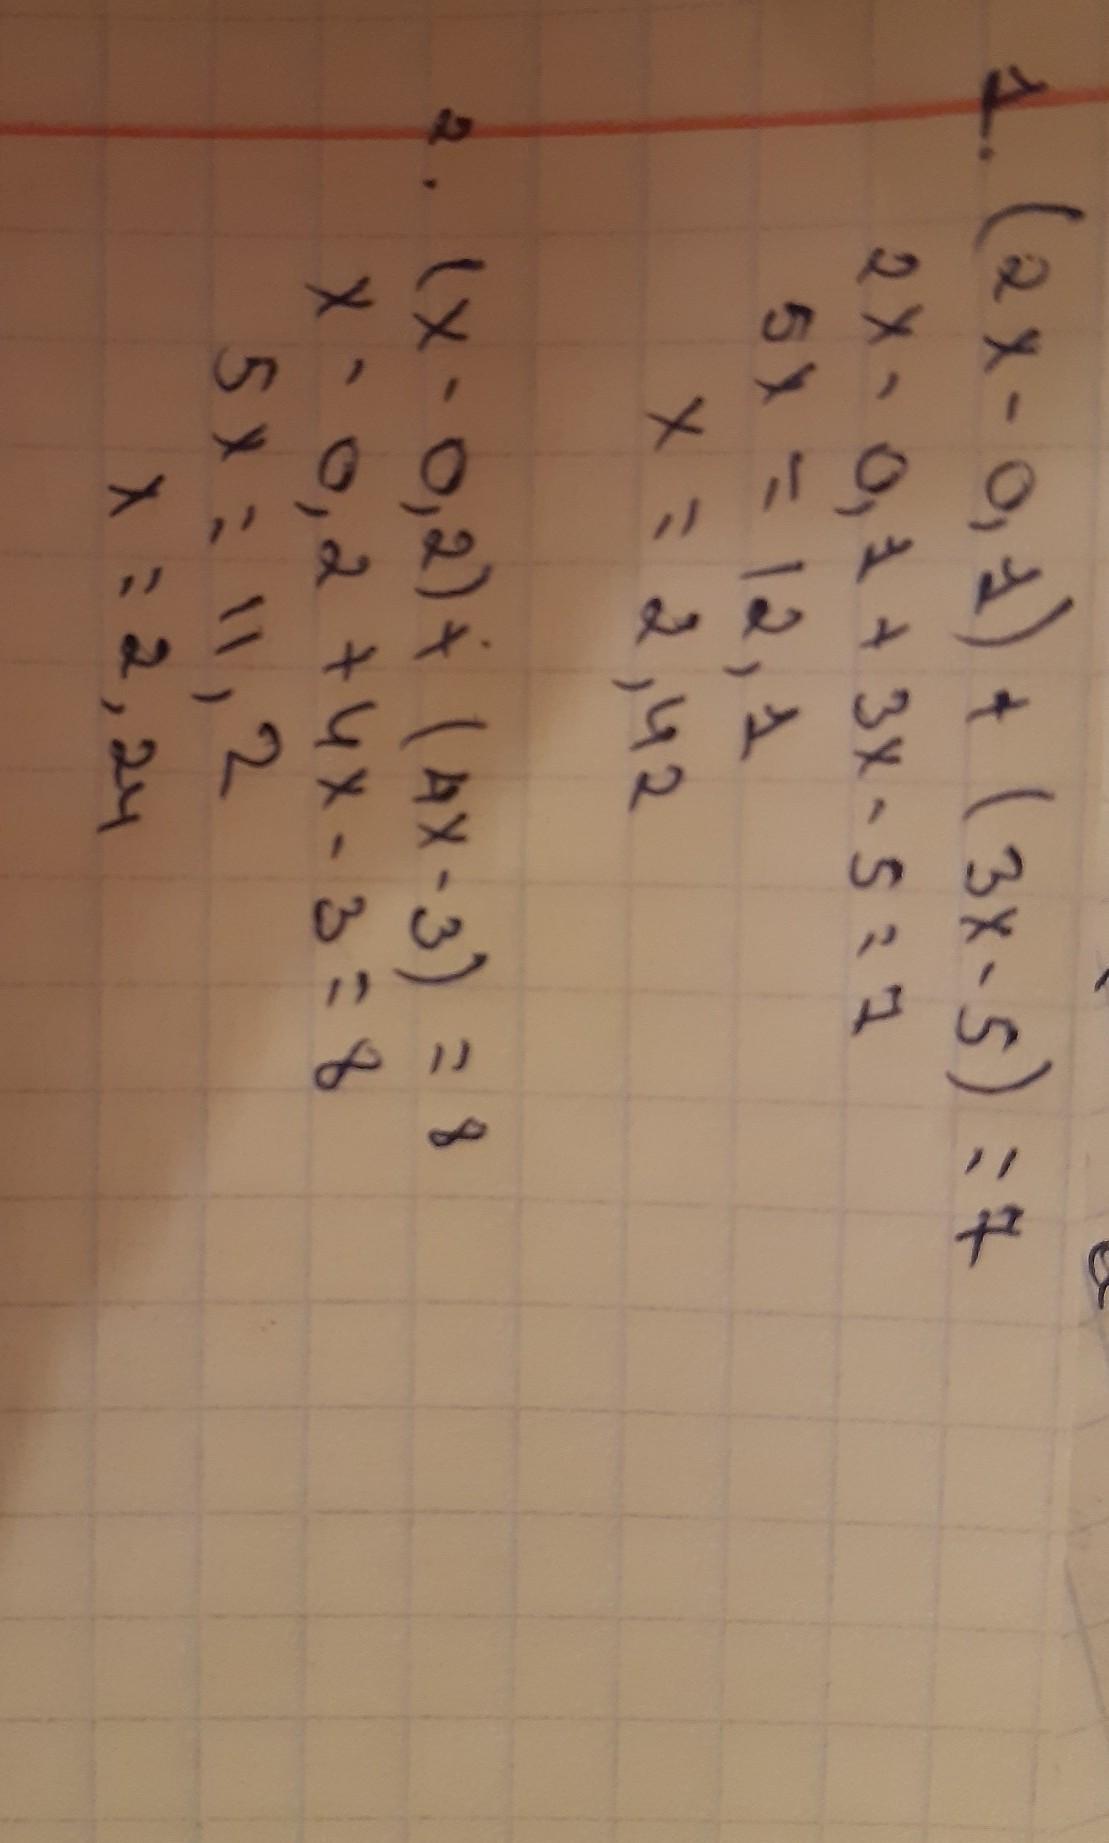 1. (2x - 0,1) + (3x - 5) = 7
2x - 0,1 + 3x - 5 = 7
5x = 12,1
x = 2,42
2. (x - 0,2) + (4x - 3) = 8
x - 0,2 + 4x - 3 = 8
5x = 11,2
x = 2,24